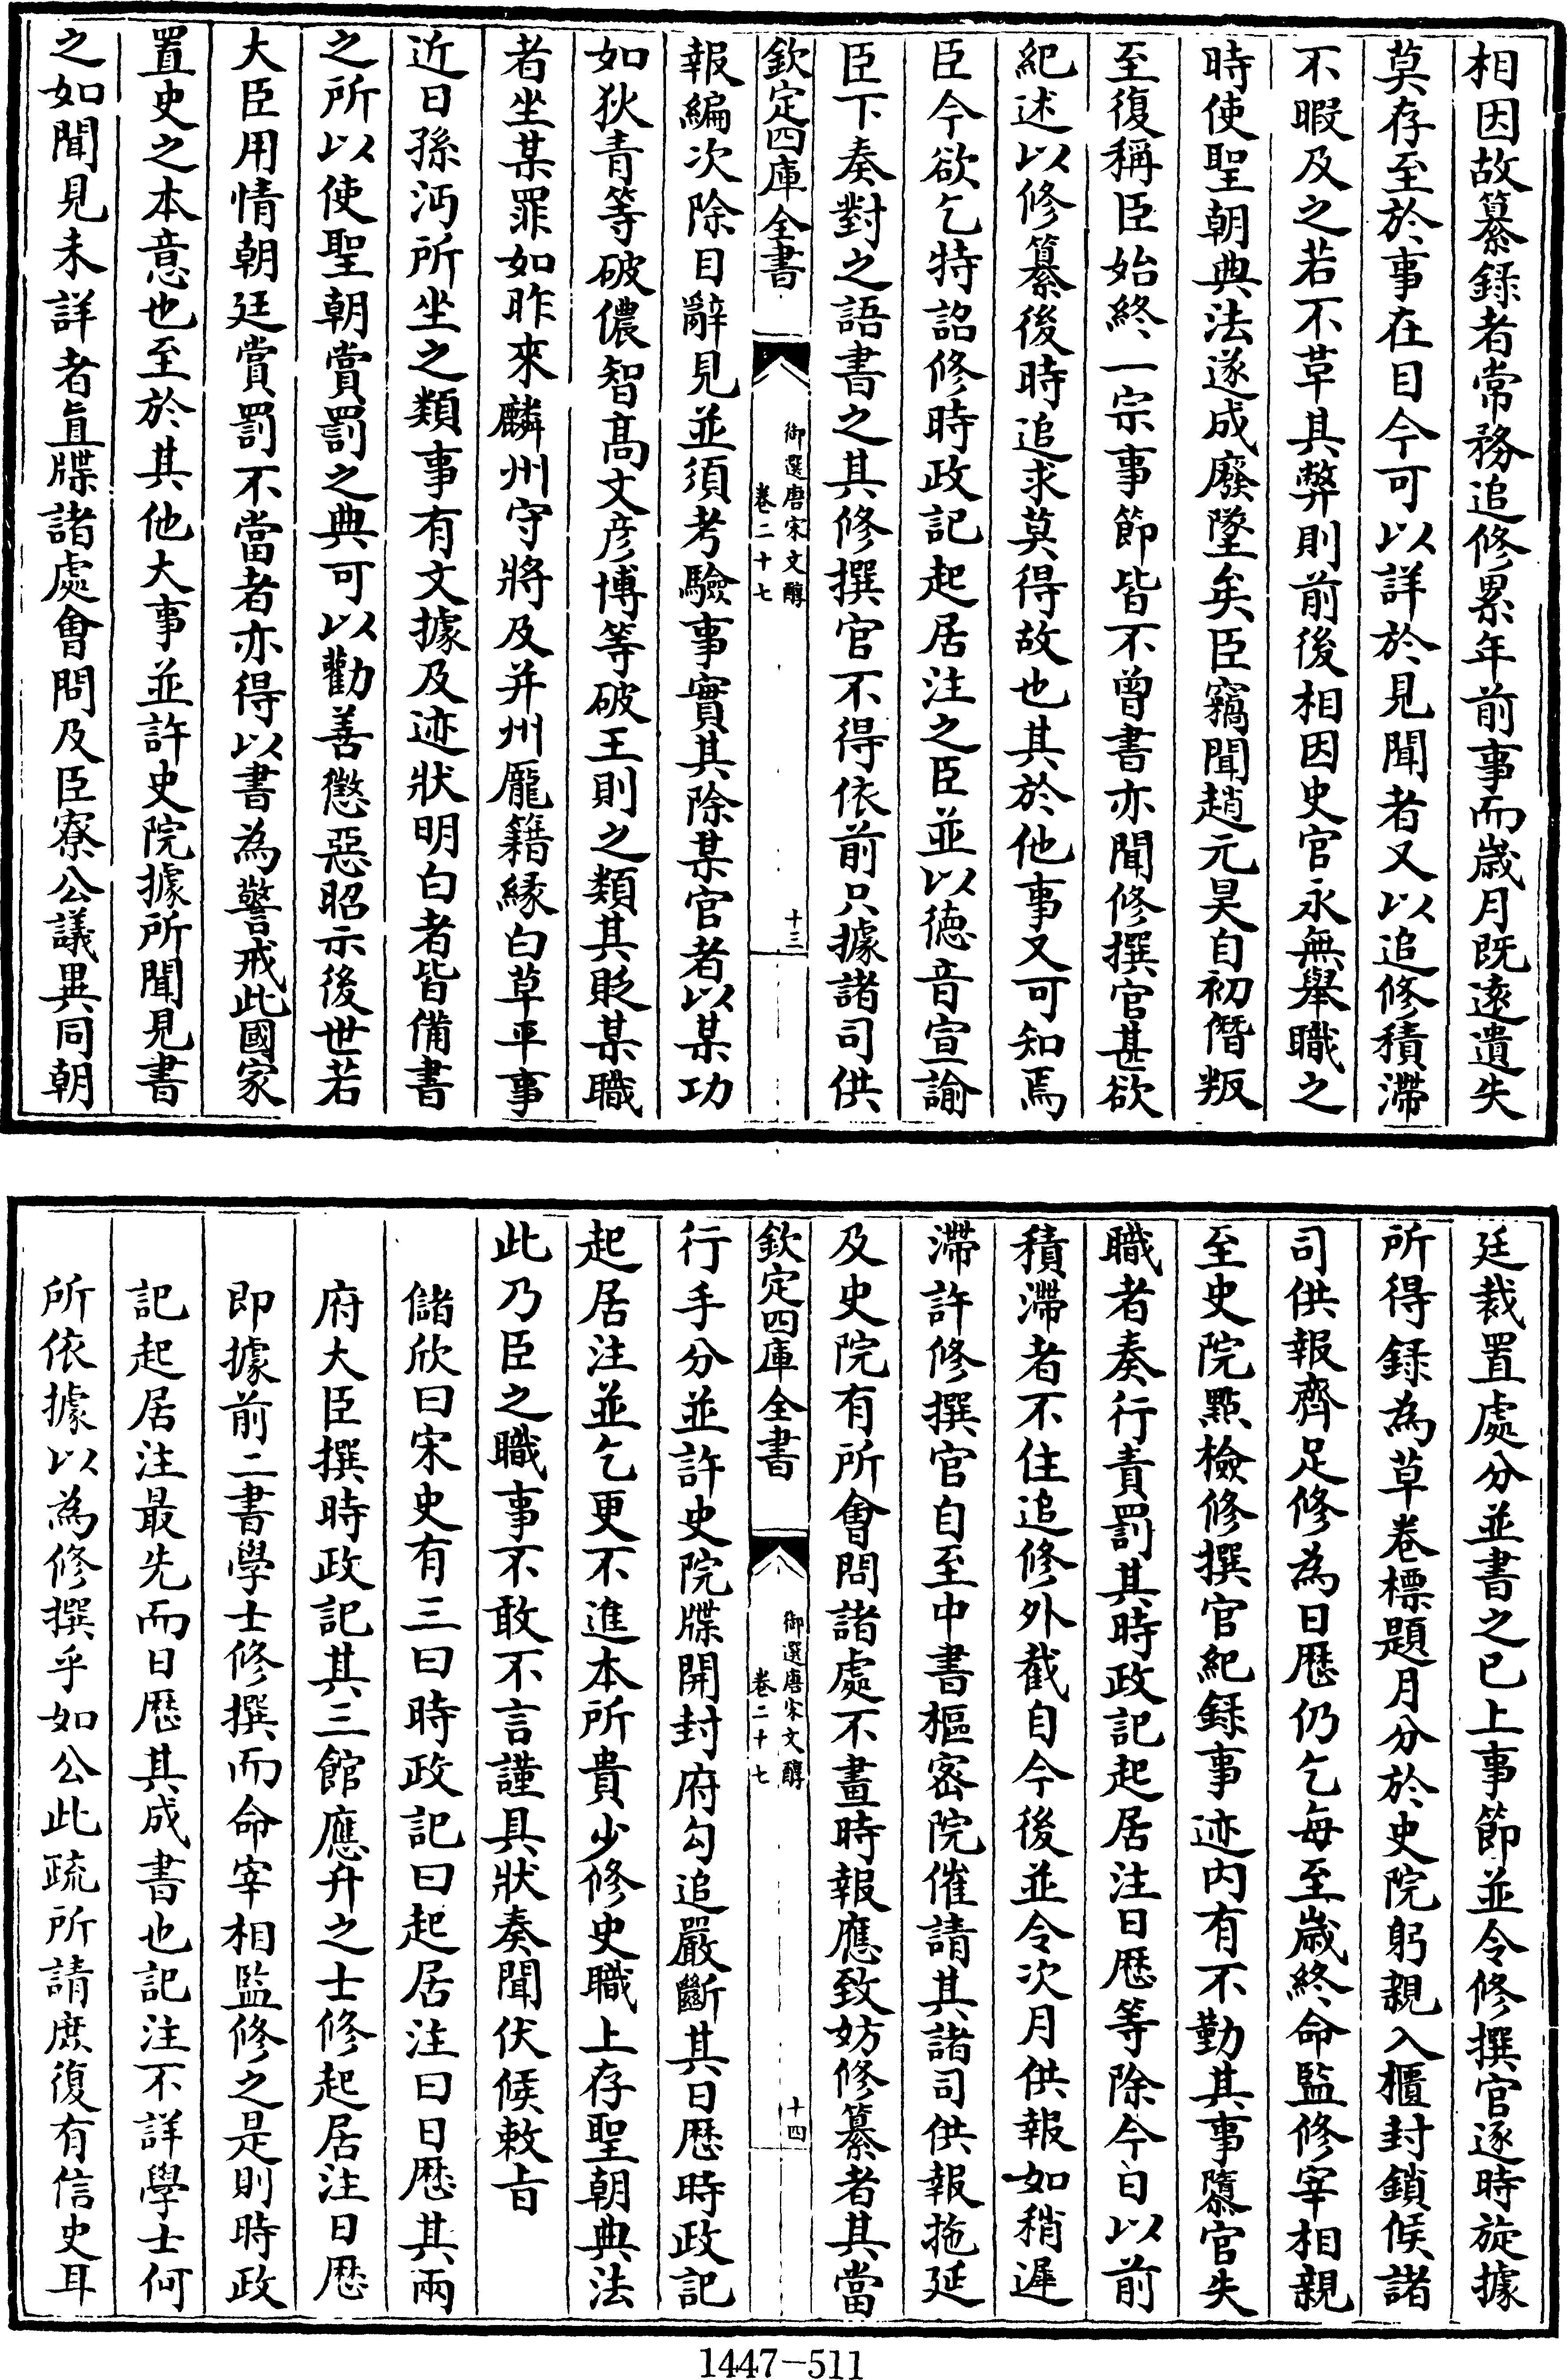 相因故纂録者常務追修累年前事而歲月既遠遺失
莫存至於事在目今可以詳於見聞者又以追修積滯
不暇及之若不革其弊則前後相因史官永無舉職之
時使聖朝典法遂成廢墜矣臣竊聞趙元昊自初僭叛
至復稱臣始終一宗事節皆不曾書亦聞修撰官甚欲
紀述以修纂後時追求莫得故也其於他事又可知焉
臣今欲乞特詔修時政記起居注之臣並以德音宣諭
臣下奏對之語書之其修撰官不得依前只據諸司供
欽定四庫全書
御選唐宋文醇
卷二十七
十三
報編次除目辭見並須考驗事實其除某官者以某功
如狄青等破儂智高文彦博等破王則之類其貶某職
者坐某罪如昨來麟州守將及并州龐籍緣白草平事
近日孫沔所坐之類事有文據及迹狀明白者皆備書
之所以使聖朝賞罰之典可以勸善懲惡昭示後世若
大臣用情朝廷賞罰不當者亦得以書為警戒此國家
置史之本意也至於其他大事並許史院據所聞見書
之如聞見未詳者直牒諸處會問及臣寮公議異同朝
廷裁置處分並書之已上事節並令修撰官逐時旋據
所得録為草卷標題月分於史院躬親入櫃封鎖候諸
司供報齊足修為日厯仍乞每至歲終命監修宰相親
至史院點檢修撰官紀録事迹内有不勤其事隳官失
職者奏行責罰其時政記起居注日厯等除今日以前
積滯者不住追修外截自今後並令次月供報如稍遲
滯許修撰官自至中書樞密院催請其諸司供報拖延
及史院有所會問諸處不畫時報應致妨修纂者其當
欽定四庫全書
御選唐宋文醇
卷二十七
十四
行手分並許史院牒開封府勾追嚴斷其日厯時政記
起居注並乞更不進本所貴少修史職上存聖朝典法
此乃臣之職事不敢不言謹具狀奏聞伏候敕旨
儲欣曰宋史有三曰時政記曰起居注曰日厯其兩
府大臣撰時政記其三館應升之士修起居注日厯
即據前二書學士修撰而命宰相監修之是則時政
記起居注最先而日厯其成書也記注不詳學士何
所依據以為修撰乎如公此疏所請庶復有信史耳
1447-511